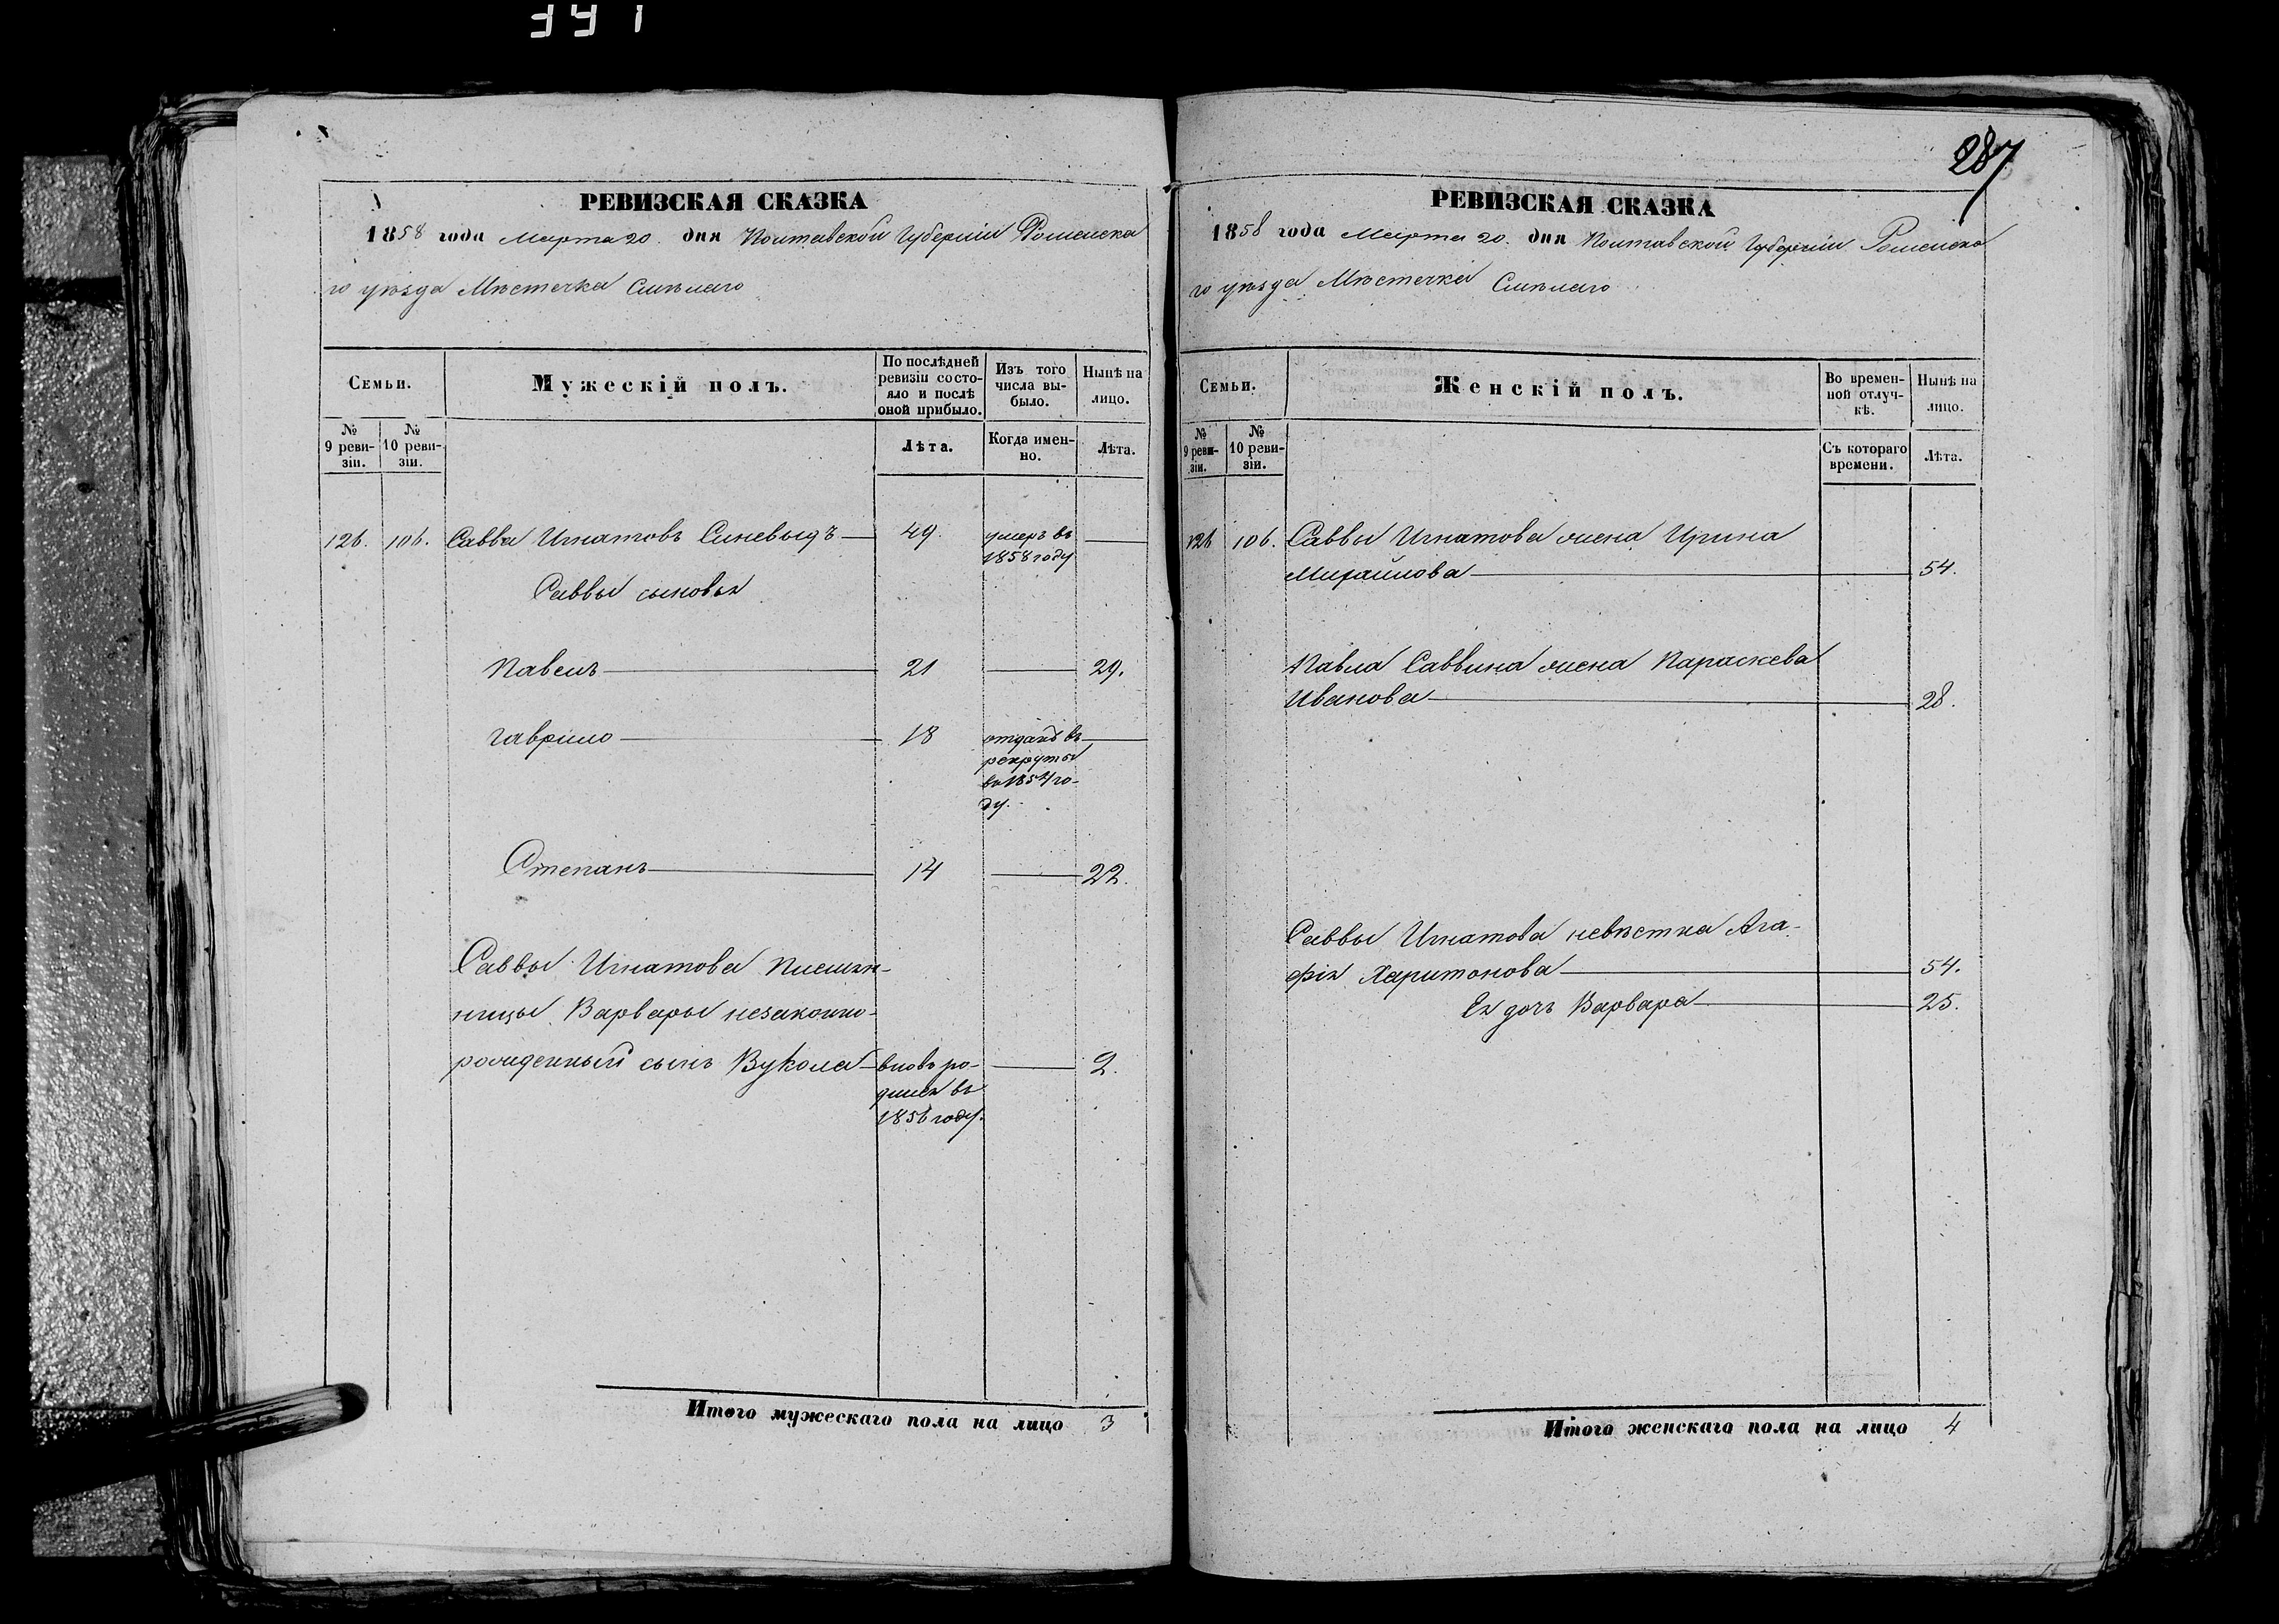 341
287
РЕВИЗСКАЯ СКАЗКА
1858 года Марта 20. дня Полтавской Губерніи Роменска
го уѣзда Мѣстечка Смѣлаго
Семьи.
Мужескій полъ.
По послѣдней ревизіи состояло и послѣ оной прибыло.
Изъ того числа выбыло.
Нынѣ на лицо.
№ 9 ревизіи.
№ 10 ревизіи.
Лѣта.
Когда именно.
Лѣта.
126. 106. Савва Игнатовъ Синевыдъ 49. умеръ въ
1858 году
Саввы сыновья
Павелъ 21 29.
Гаврило 18 отданъ въ
рекруты
въ 1854 го-
ду.
Степанъ 14 22.
Саввы Игнатова
Варвары незаконно-
рожденный сынъ Вукола вновь ро- 2.
дился въ
1856 году.
Итого мужескаго пола на лицо 3
РЕВИЗСКАЯ СКАЗКА
1858 года Марта 20. дня Полтавской Губерніи Роменска
го уѣзда Мѣстечка Смѣлаго
Семьи.
Женскій полъ.
Во временной отлучкѣ.
Нынѣ на лицо.
№ 9 ревизіи.
№ 10 ревизіи.
Съ котораго времени.
Лѣта.
126 106. Саввы Игнатова жена Ирина
Михайлова 54.
Павла Саввина жена Параскева
Иванова 28.
Саввы Игнатова невѣстка Ага-
фія Харитонова 54.
Ея дочь Варвара 25.
Итого женскаго пола на лицо 4